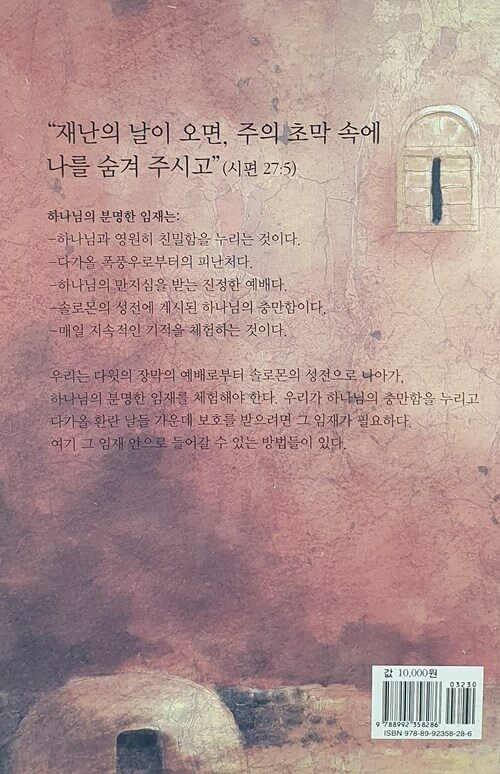 “재난의 날이 오면, 주의 초막 속에
나를 숨겨 주시고”(시편 27:5)
하나님의 분명한 임재는:
-하나님과 영원히 친밀함을 누리는 것이다.
-다가올 폭풍우로부터의 피난처다.
-하나님의 만지심을 받는 진정한 예배다.
-솔로몬의 성전에 계시된 하나님의 충만함이다.
-매일 지속적인 기적을 체험하는 것이다.
우리는 다윗의 장막의 예배로부터 솔로몬의 성전으로 나아가,
하나님의 분명한 임재를 체험해야 한다. 우리가 하나님의 충만함을 누리고
다가올 환란 날들 가운데 보호를 받으려면 그 임재가 필요하다.
여기 그 임재 안으로 들어갈 수 있는 방법들이 있다.
값 10,000원
03230
9 788992 358286
ISBN 978-89-92358-28-6